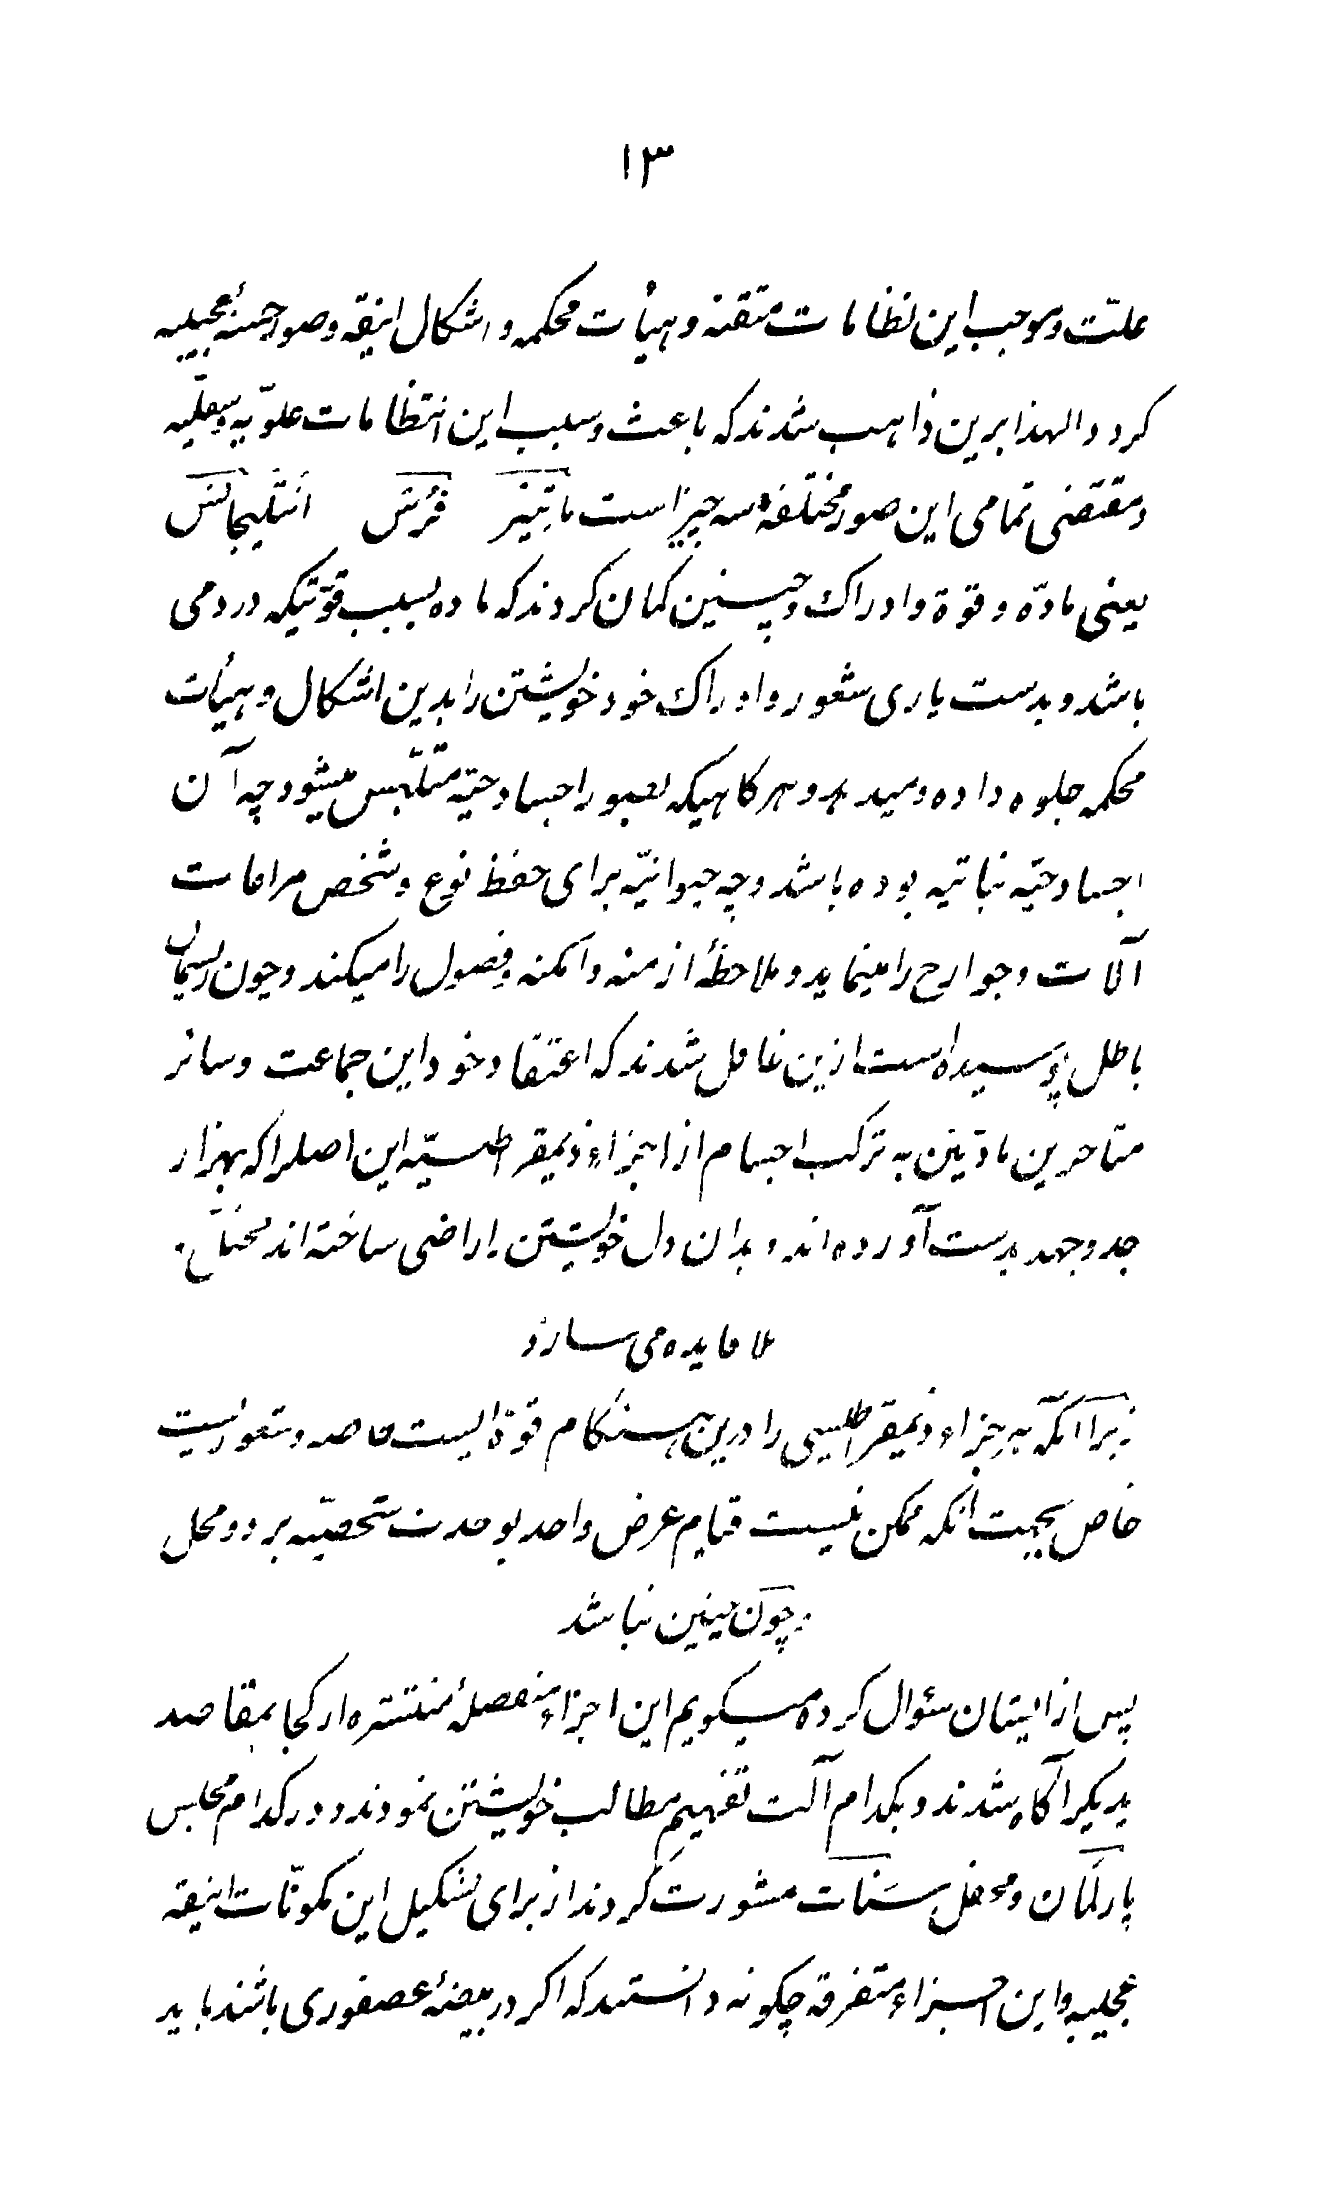 ۱۳
علّت و موجب این نظامات متقنه و هیأت محکمه و اشکال انیقه و صور حسنهٔ عجیبه
کردد الهذا برین ذاهب شدند که باعث و سبب این انتظامات علویّه و سفلیّه
و مقتضی تمامی این صور مختلفه سه چیز است ماتییر فُرْس انتلیجانس
یعنی مادّه و قوة و ادراک و چنین کمان کردند که ماده بسبب قوّتیکه در دمی
باشد و بدست یاری شعور و ادراک خود خویشتن را بدین اشکال و هیأت
محکمه جلوه داده و میدهد و هرکاهیکه بصور اجساد حیّه متلبّس میشود چه آن
اجساد حیّه نباتیه بوده باشد و چه حیوانیّه برای حفظ نوع و شخص مراعات
آلات و جوارح را مینماید و ملاحظهٔ ازمنه و امکنه و فصول را میکند و چون ریسمان
باطل پوسیده است ازین غافل شدند که اعتقاد خود این جماعت و سائر
متأخرین مادّیین به ترکب اجسام از اجزاء ذیمقراطیسیّه این اصلرا که بهزار
جد و جهد بدست آورده اند و بدان دل خویشتن را راضی ساخته اند مختلّ
بلا فایده می سازد
زیرا آنکه هر جزاء ذیمقراطیسی را درین هنکام قوّة ایست خاصه و شعوریست
خاص بجهت آنکه ممکن نیست قیام عرض واحد بوحدت شخصیّه بر دو محل
و چون چنین نباشد
پس از ایشان سؤال کرده میگویم این اجزاء منفصلهٔ منتشره از کجا بمقاصد
یدیکر آکاه شدند و بکدام آلت تفهیم مطالب خویشتن نمودند و در کدام مجلس
پارلمان و محفل سنات مشورت کردند از برای تشکیل این مکونّات انیقه
عجیبه و این اجزاء متفرقه چکونه دانستند که اکر در بیضهٔ عصفوری باشند باید